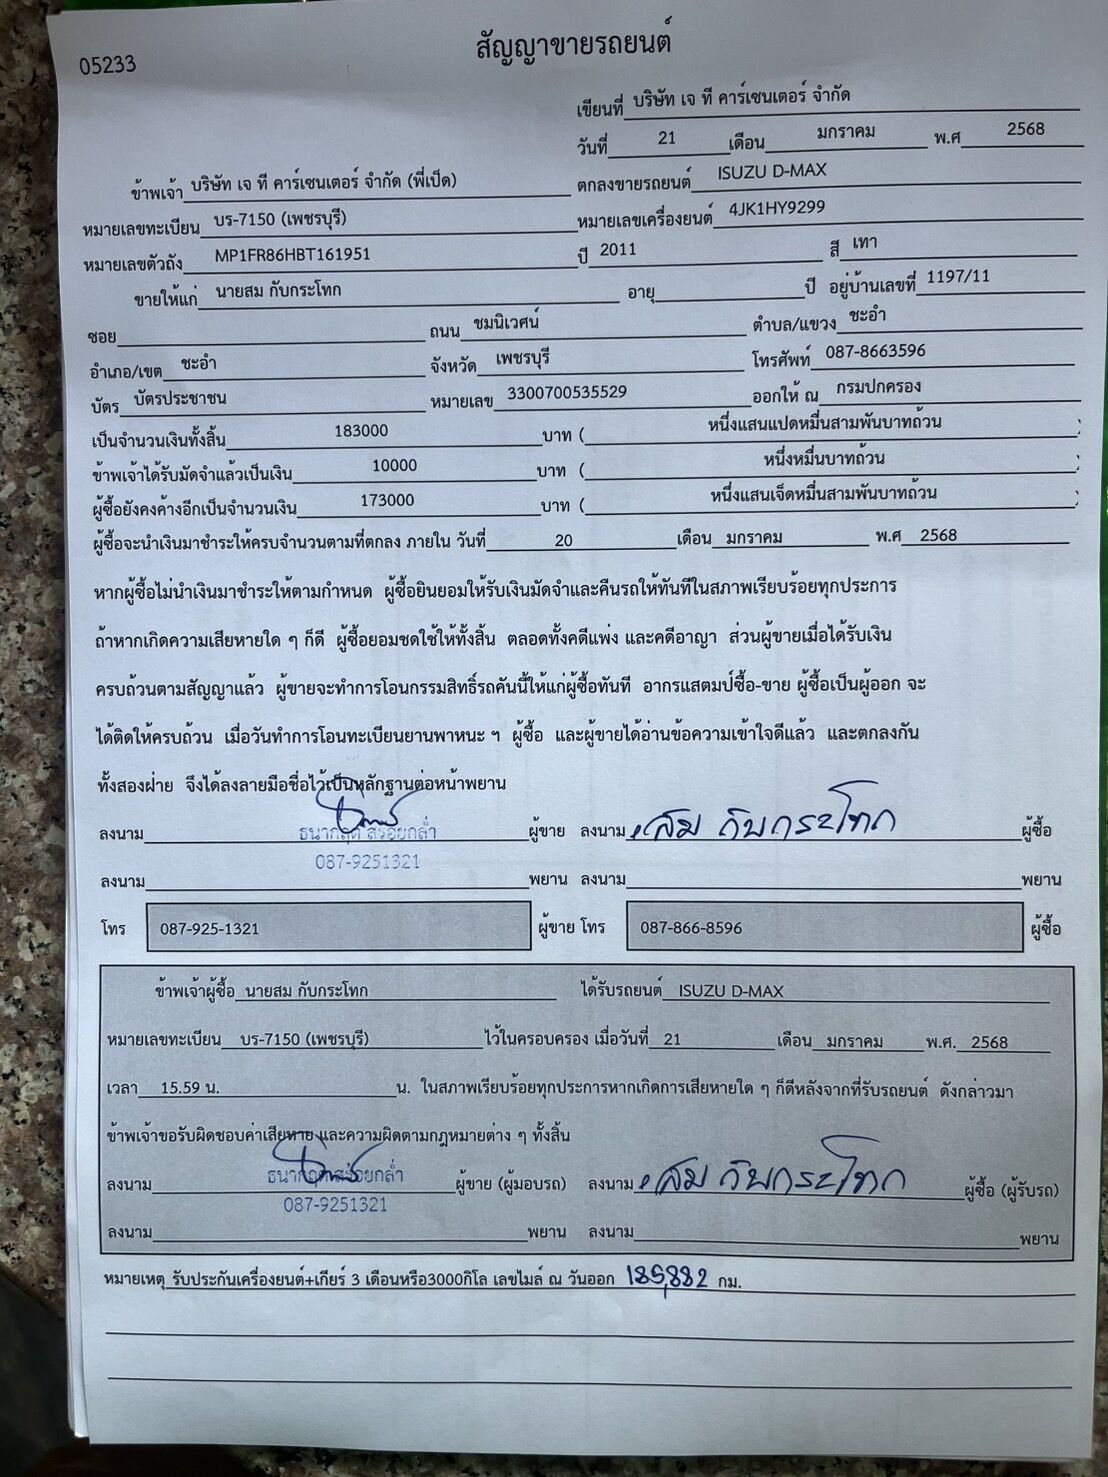 05233
สัญญาขายรถยนต์
เขียนที่ บริษัท เจ ที คาร์เซนเตอร์ จำกัด
วันที่ 21 เดือน มกราคม พ.ศ 2568
ข้าพเจ้า บริษัท เจ ที คาร์เซนเตอร์ จำกัด (พี่เป็ด) ตกลงขายรถยนต์ ISUZU D-MAX
หมายเลขทะเบียน บร-7150 (เพชรบุรี) หมายเลขเครื่องยนต์ 4JK1HY9299
หมายเลขตัวถัง MP1FR86HBT161951 ปี 2011 สี เทา
ขายให้แก่ นายสม กับกระโทก อายุ ปี อยู่บ้านเลขที่ 1197/11
ซอย ถนน ชมนิเวศน์ ตำบล/แขวง ชะอำ
อำเภอ/เขต ชะอำ จังหวัด เพชรบุรี โทรศัพท์ 087-8663596
บัตร บัตรประชาชน หมายเลข 3300700535529 ออกให้ ณ กรมปกครอง
เป็นจำนวนเงินทั้งสิ้น 183000 บาท ( หนึ่งแสนแปดหมื่นสามพันบาทถ้วน )
ข้าพเจ้าได้รับมัดจำแล้วเป็นเงิน 10000 บาท ( หนึ่งหมื่นบาทถ้วน )
ผู้ซื้อยังคงค้างอีกเป็นจำนวนเงิน 173000 บาท ( หนึ่งแสนเจ็ดหมื่นสามพันบาทถ้วน )
ผู้ซื้อจะนำเงินมาชำระให้ครบจำนวนตามที่ตกลง ภายใน วันที่ 20 เดือน มกราคม พ.ศ 2568
หากผู้ซื้อไม่นำเงินมาชำระให้ตามกำหนด ผู้ซื้อยินยอมให้รับเงินมัดจำและคืนรถให้ทันทีในสภาพเรียบร้อยทุกประการ
ถ้าหากเกิดความเสียหายใด ๆ ก็ดี ผู้ซื้อยอมชดใช้ให้ทั้งสิ้น ตลอดทั้งคดีแพ่ง และคดีอาญา ส่วนผู้ขายเมื่อได้รับเงิน
ครบถ้วนตามสัญญาแล้ว ผู้ขายจะทำการโอนกรรมสิทธิ์รถคันนี้ให้แก่ผู้ซื้อทันที อากรแสตมป์ซื้อ-ขาย ผู้ซื้อเป็นผู้ออก จะ
ได้ติดให้ครบถ้วน เมื่อวันทำการโอนทะเบียนยานพาหนะ ฯ ผู้ซื้อ และผู้ขายได้อ่านข้อความเข้าใจดีแล้ว และตกลงกัน
ทั้งสองฝ่าย จึงได้ลงลายมือชื่อไว้เป็นหลักฐานต่อหน้าพยาน
ลงนาม ธนากฤต สร้อยกล่ำ ผู้ขาย ลงนาม สม กับกระโทก ผู้ซื้อ
087-9251321
ลงนาม พยาน ลงนาม พยาน
โทร 087-925-1321 ผู้ขาย โทร 087-866-8596 ผู้ซื้อ
ข้าพเจ้าผู้ซื้อ นายสม กับกระโทก ได้รับรถยนต์ ISUZU D-MAX
หมายเลขทะเบียน บร-7150 (เพชรบุรี) ไว้ในครอบครอง เมื่อวันที่ 21 เดือน มกราคม พ.ศ. 2568
เวลา 15.59 น. น. ในสภาพเรียบร้อยทุกประการหากเกิดการเสียหายใด ๆ ก็ดีหลังจากที่รับรถยนต์ ดังกล่าวมา
ข้าพเจ้าขอรับผิดชอบค่าเสียหาย และความผิดตามกฎหมายต่าง ๆ ทั้งสิ้น
ลงนาม ธนากฤต สร้อยกล่ำ ผู้ขาย (ผู้มอบรถ) ลงนาม สม กับกระโทก ผู้ซื้อ (ผู้รับรถ)
087-9251321
ลงนาม พยาน ลงนาม พยาน
หมายเหตุ รับประกันเครื่องยนต์+เกียร์ 3 เดือนหรือ3000กิโล เลขไมล์ ณ วันออก 185,882 กม.